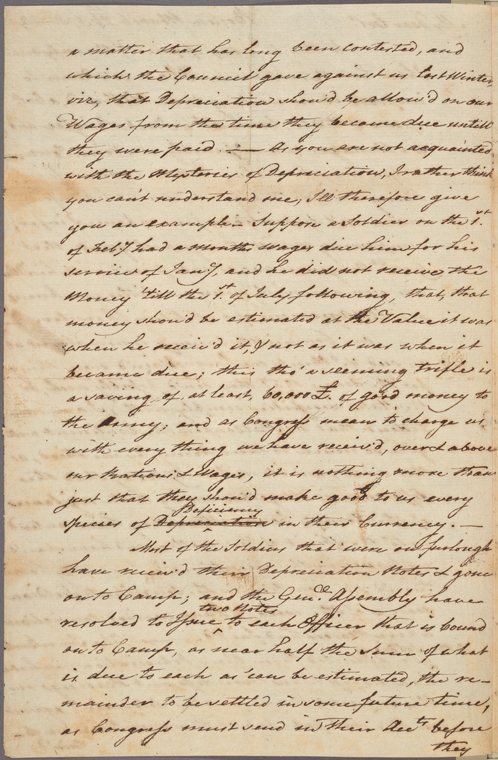 a matter that has long been contested, and
which the Council gave against us last Winter,
viz, that Depreciation shou'd be allow'd on our
Wages from the time they became due untill
they were paid. — As you are not acquainted
with the Mysteries of Depreciation, I rather think
you can't understand me, I'll therefore give
you an example. Suppose a Soldier on the 1st.
of Feby. had a Months wages due him for his
service of Jany. and he did not receive the
Money 'till the 1st. of July following, that, that
money shou'd be estimated at the Value it was
when he receiv'd it, & not as it was when it
became due; this tho' a seeming trifle is
a saving of at least, 60,000 £. of good money to
the Army; and as Congress mean to charge us
with every thing we have receiv'd, over & above
our Rations & Wages, it is nothing more than
just that they shou'd make good to us every
Deficiency
species of Depreciation in their Currency. —
Most of the Soldiers that were on furlough
have receiv'd their Depreciation Notes & gone
on to Camp; and the Genll. Assembly have
two Notes
resolved to Issue to each Officer that is bound
on to Camp, as near half the Sum of what
is due to each as can be estimated, the re-
mainder to be settled in some future time,
as Congress must send in their Accts. before
they